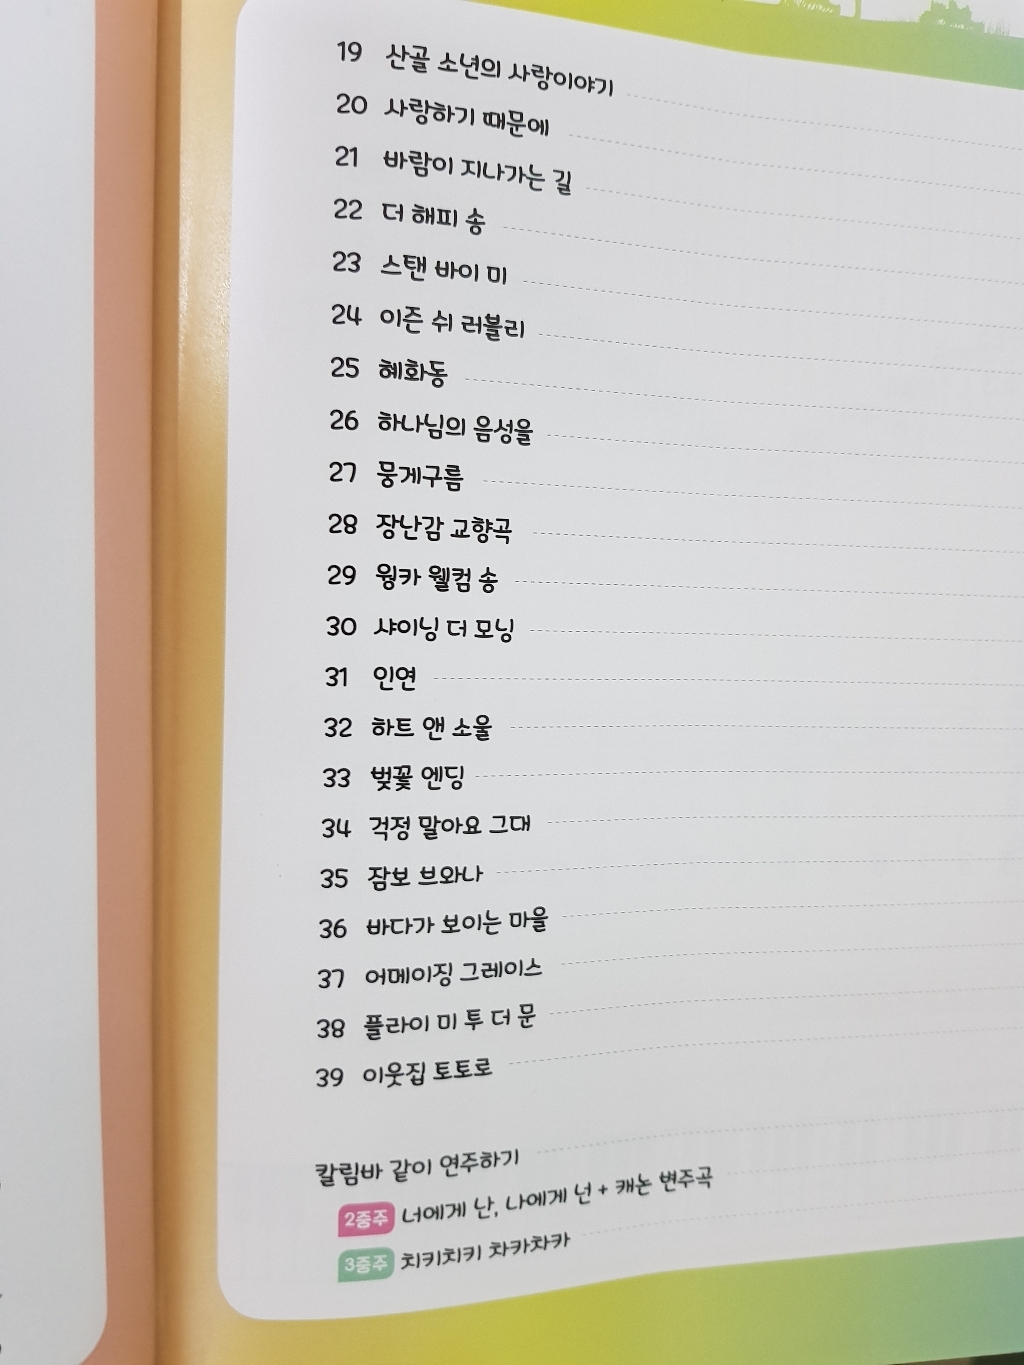 19 산골 소년의 사랑이야기
20 사랑하기 때문에
21 바람이 지나가는 길
22 더 해피 송
23 스탠 바이 미
24 이즌 쉬 러블리
25 혜화동
26 하나님의 음성을
27 뭉게구름
28 장난감 교향곡
29 웡카 웰컴 송
30 샤이닝 더 모닝
31 인연
32 하트 앤 소울
33 벚꽃 엔딩
34 걱정 말아요 그대
35 잠보 브와나
36 바다가 보이는 마을
37 어메이징 그레이스
38 플라이 미 투 더 문
39 이웃집 토토로
칼림바 같이 연주하기
2중주 너에게 난, 나에게 넌 + 캐논 변주곡
3중주 치키치키 차카차카